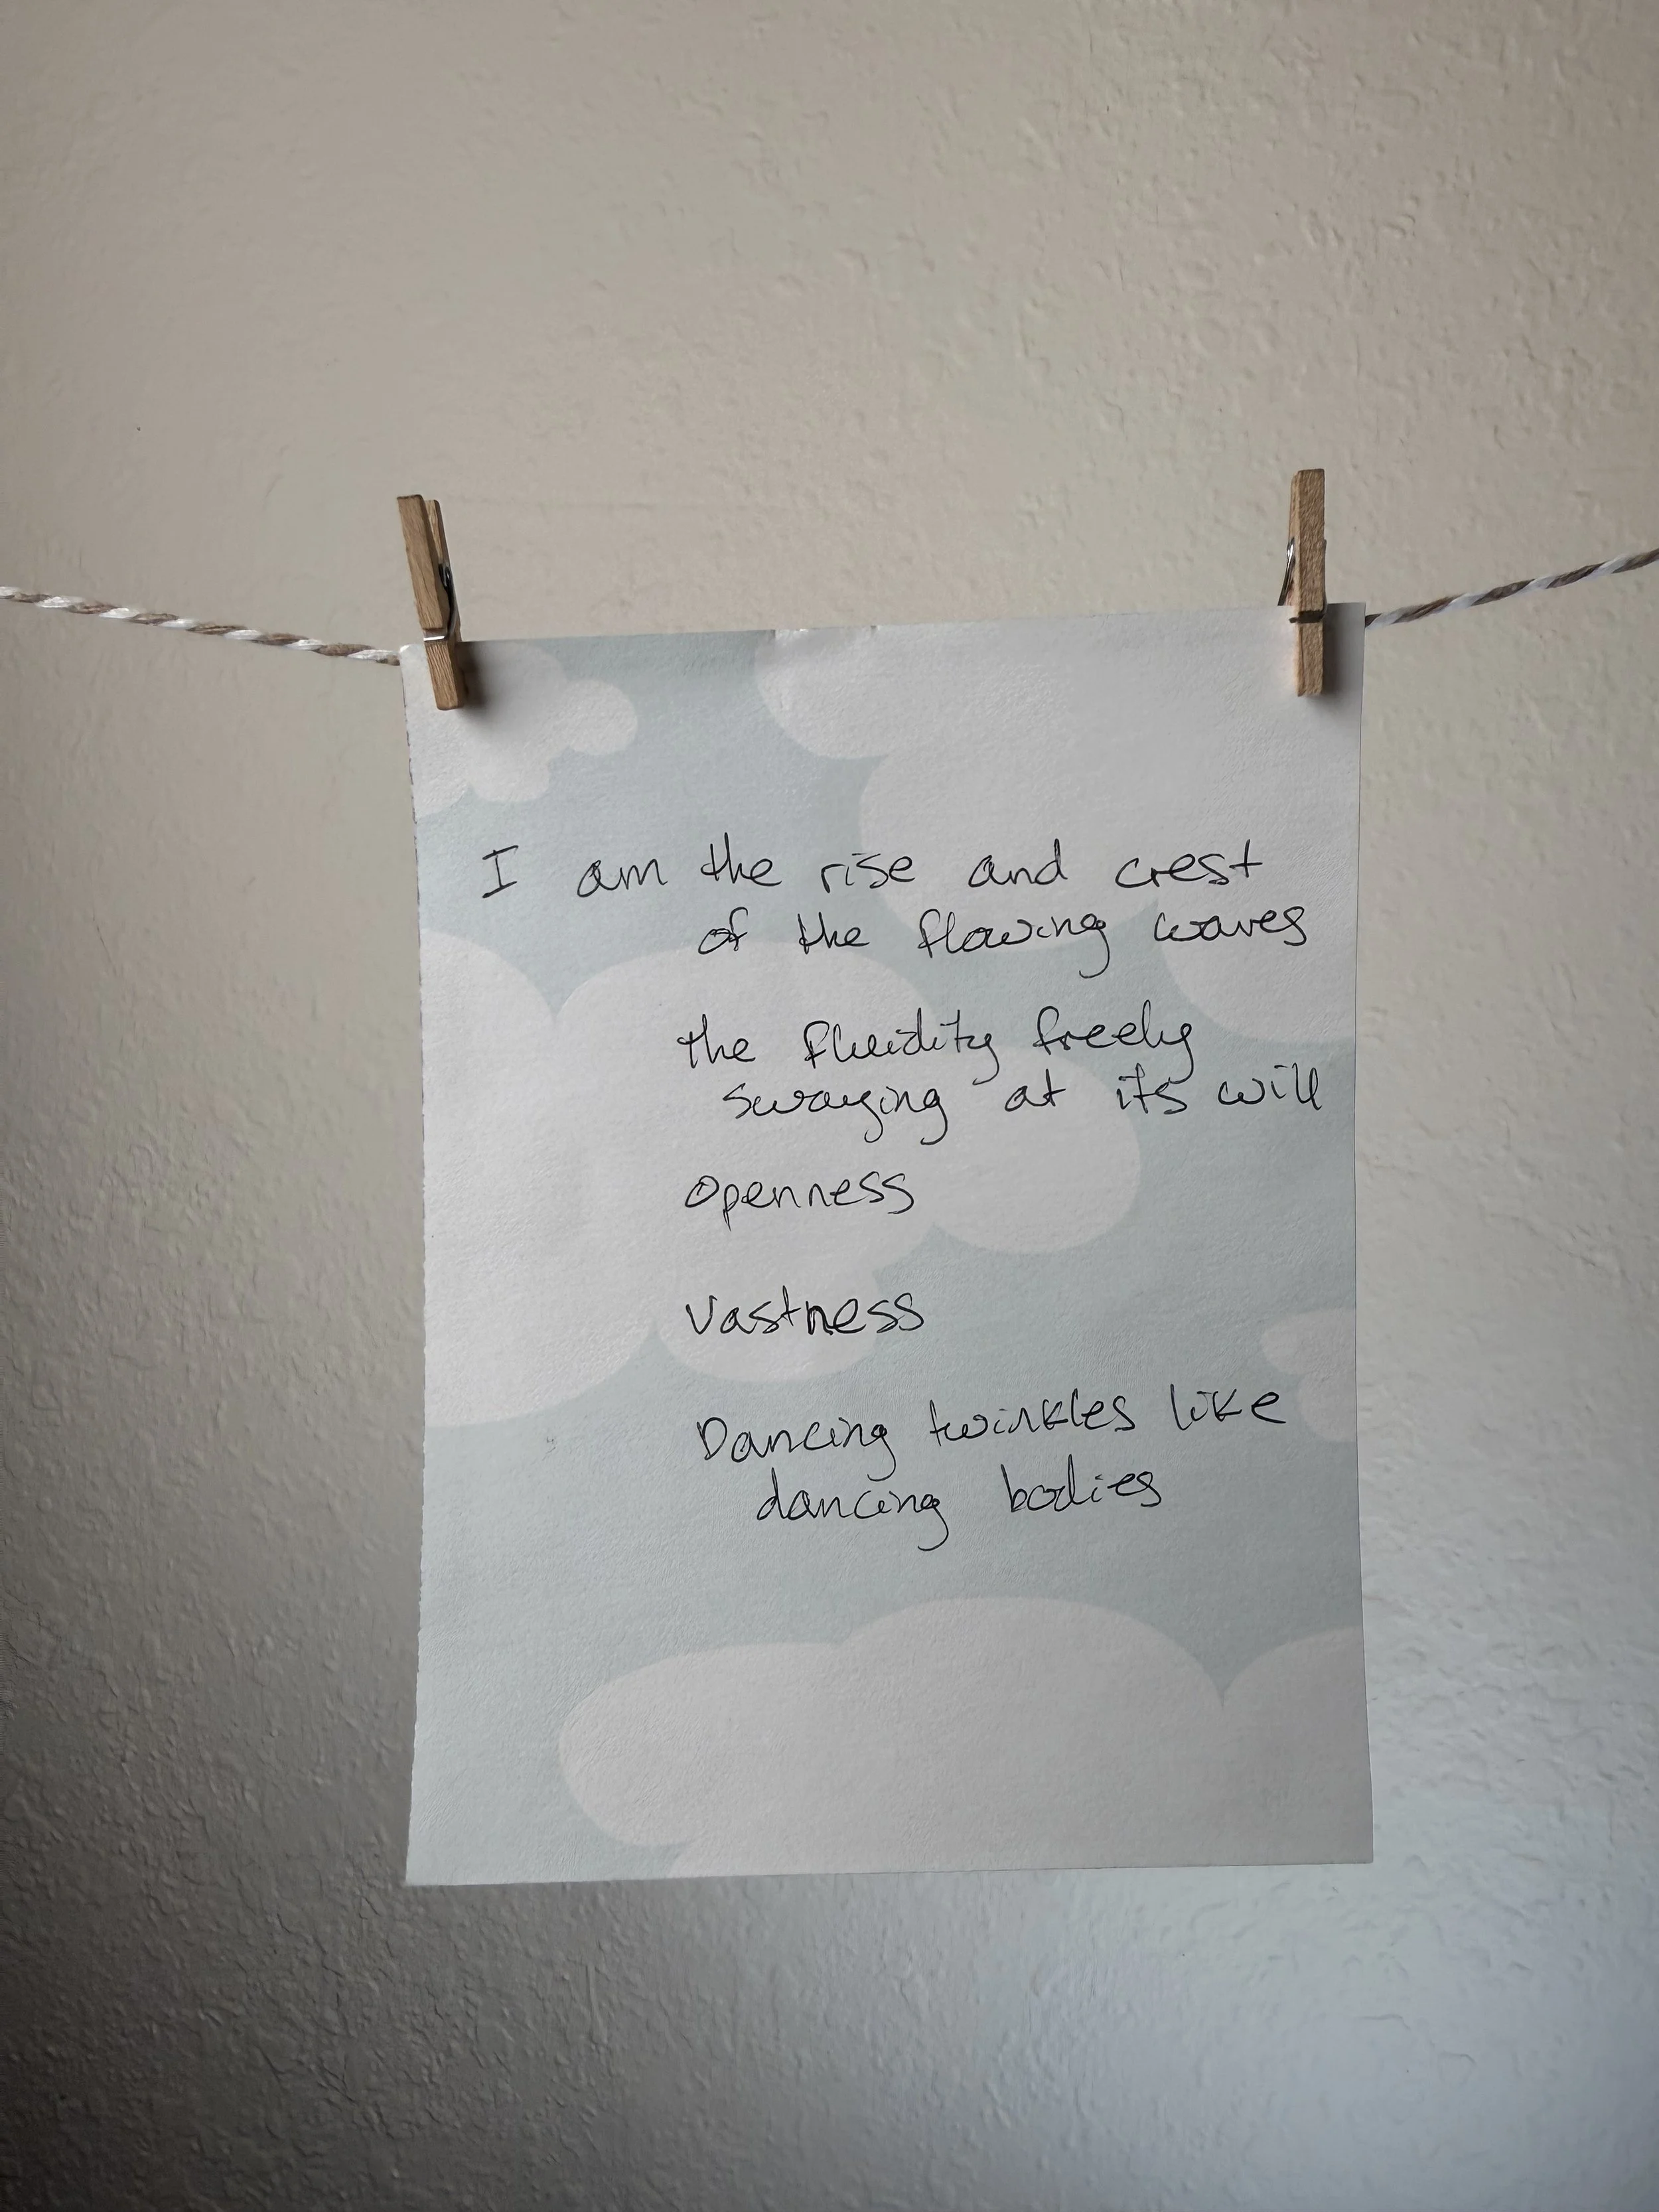 I am the rise and crest
of the flowing waves
the fluidity freely
swaying at its will
Openness
Vastness
Dancing twinkles like
dancing bodies